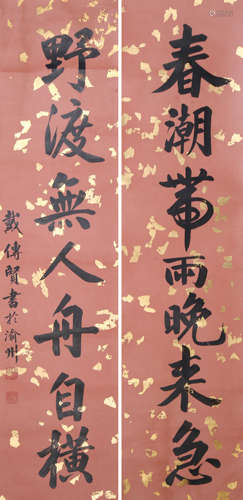 春潮帶雨晚来急
野渡無人舟自橫
戴傳賢書於渝州